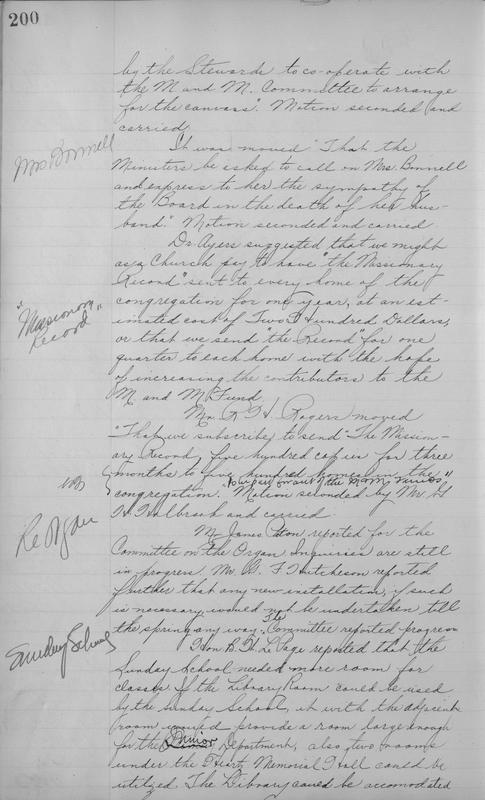 200
by the Stewards to co-operate with
the M and M. Committee to arrange
for the canvass". Motion seconded and
carried.
Mrs Bonnell
It was moved "That the
Ministers be asked to call on Mrs. Bonnell
and express to her the sympathy of
the Board in the death of her hus-
band." Motion seconded and carried.
Dr. Ayers suggested that we might
as a Church pay to have "the Missionary
Record" sent to every home of the
"Missionary
Record"
congregation for one year, at an est-
imated cost of Two Hundred Dollars,
or that we send "the Record" for one
quarter to each home with the hope
of increasing the contributors to the
M and M Fund.
Mr. R. H. Rogers moved
"That we subscribe to send "The Mission-
ary Record, five hundred copies for three
months to five hundred homes in the
to be paid for out of the M & M Funds"
congregation. Motion seconded by Mr. H
H. Holbrook and carried.
Re Organ
Mr James Paton reported for the
Committee on the Organ Inquiries are still
in progress. Mr. F. Hutcheson reported
further that any new installation, if such
is necessary, would not be undertaken till
the spring any way. The Committee reported progress
Sunday School
Hon B. W. Le Page reported that the
Sunday School needed more room for
classes. If the Library Room could be used
by the Sunday School, it with the adjacent
room would provide a room large enough
for the Junior Department, also two rooms
under the Heartz Memorial Hall could be
utilized. The Library could be accomodated